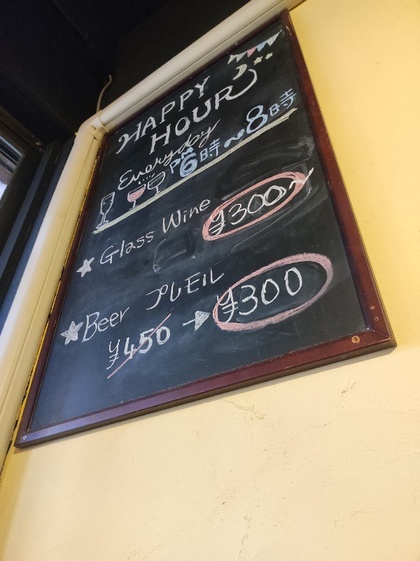 HAPPY
HOUR
Everyday
PM6時〜8時
Glass Wine ¥300〜
Beer プレモル
¥450 → ¥300